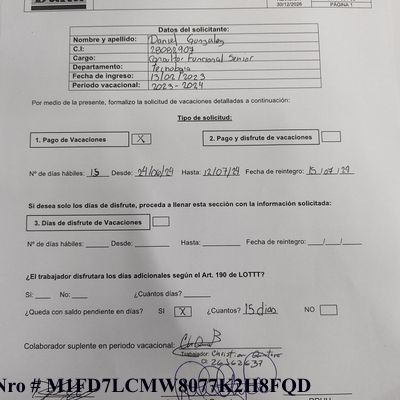 30/12/2026 PÁGINA 1
Datos del solicitante:
Nombre y apellido: Daniel Gonzalez
C.I: 28082907
Cargo: Consultor Funcional Senior
Departamento: Tecnología
Fecha de ingreso: 13/02/2023
Periodo vacacional: 2023-2024
Por medio de la presente, formalizo la solicitud de vacaciones detalladas a continuación:
Tipo de solicitud:
1. Pago de Vacaciones X 2. Pago y disfrute de vacaciones
Nº de días hábiles: 15 Desde: 24/06/24 Hasta: 12/07/24 Fecha de reintegro: 15/07/24
Si desea solo los días de disfrute, proceda a llenar esta sección con la información solicitada:
3. Días de disfrute de Vacaciones
Nº de días hábiles: Desde: Hasta: Fecha de reintegro: / /
¿El trabajador disfrutara los días adicionales según el Art. 190 de LOTTT?
Sí: No: ¿Cuántos días?
¿Queda con saldo pendiente en días? SI X ¿Cuantos? 15 dias NO
Colaborador suplente en periodo vacacional:
Trabajador: Christian
Nro # M1FD7LCMW8077K2H8FQD